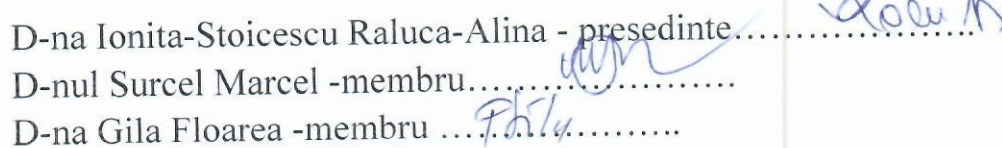 D-na Ionita-Stoicescu Raluca-Alina - presedinte.....................
D-nul Surcel Marcel -membru.......................
D-na Gila Floarea -membru .....................